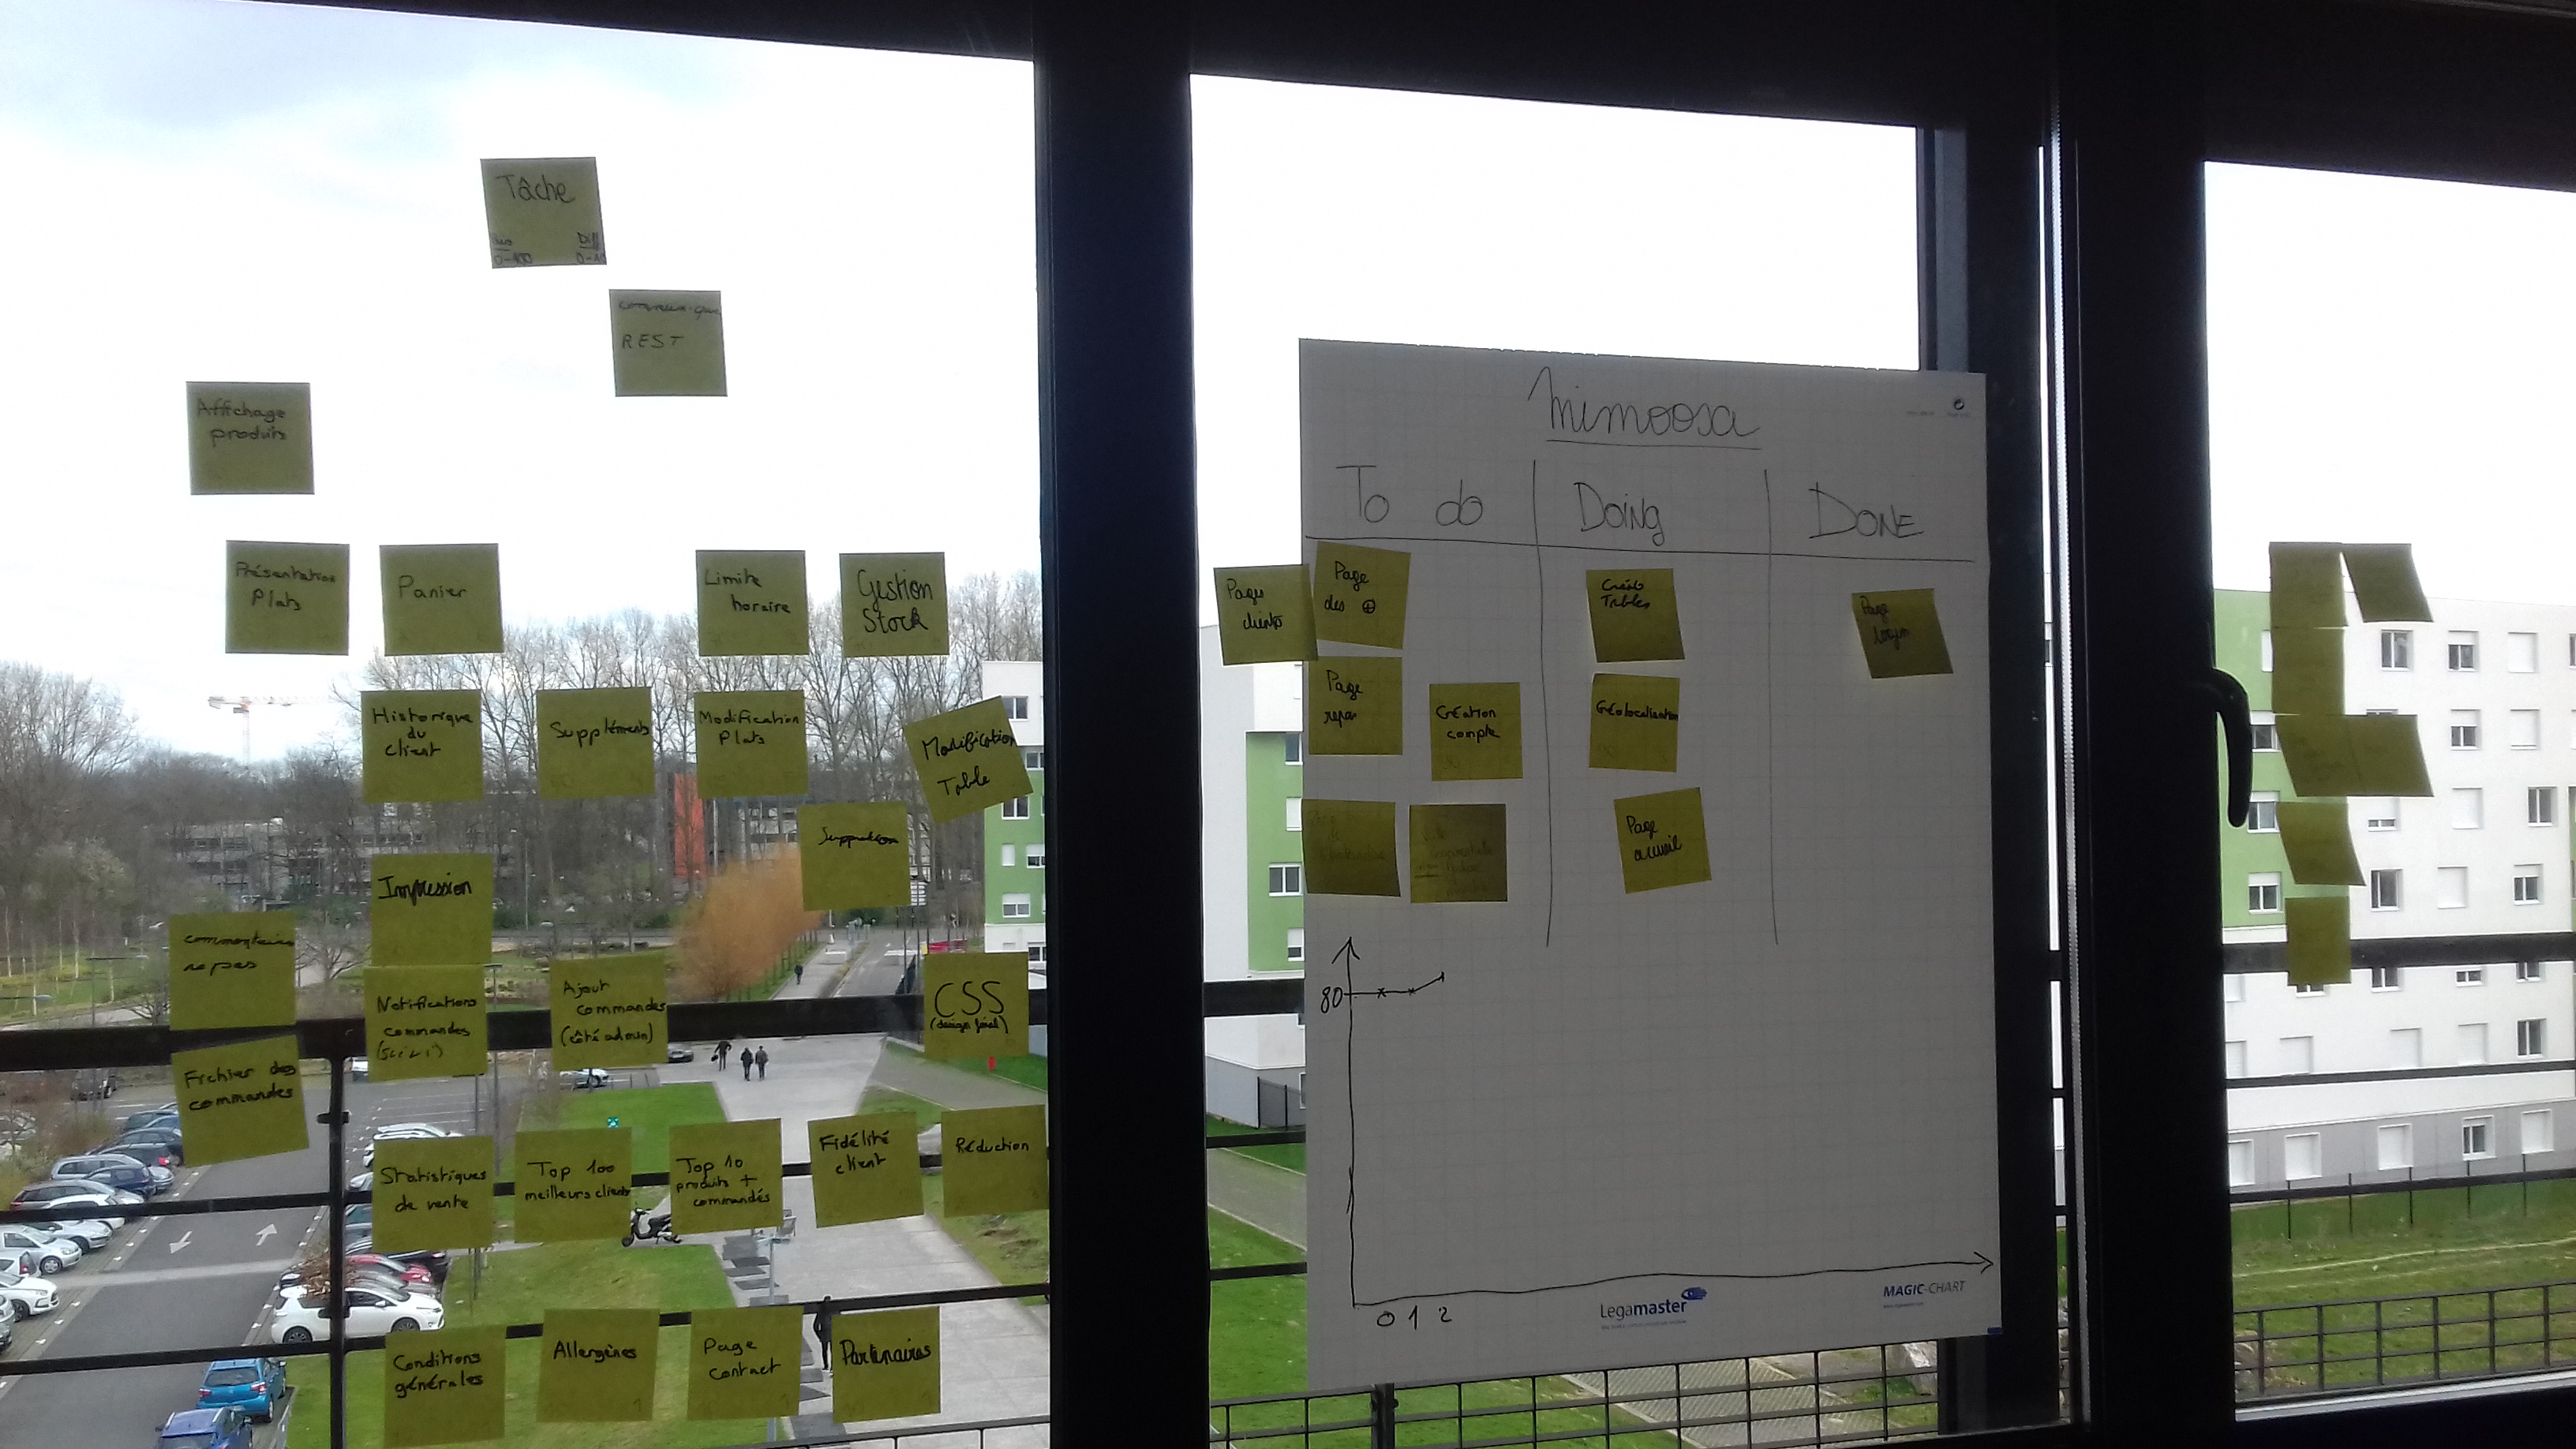 Tâche
Diff
0-100
REST
Affichage
produits
Présentation
Plats
Panier
Limite
horaire
Gestion
Stock
Historique
du
client
Suppléments
Modification
Plats
Modification
Table
Impression
commentaires
repas
Notifications
commandes
(suivi)
Ajout
commandes
(côté admin)
CSS
(design final)
Fichier des
commandes
Statistiques
de vente
Top 100
meilleurs clients
Top 10
produits +
commandés
Fidélité
client
Réduction
Conditions
générales
Allergènes
Page
contact
Partenaires
mimoosa
To do
Doing
DONE
Pages
clients
Page
des ⊕
Page
repas
Création
compte
Tables
Géolocalisation
Page
accueil
Page
login
80
0 1 2
Legamaster
MAGIC-CHART